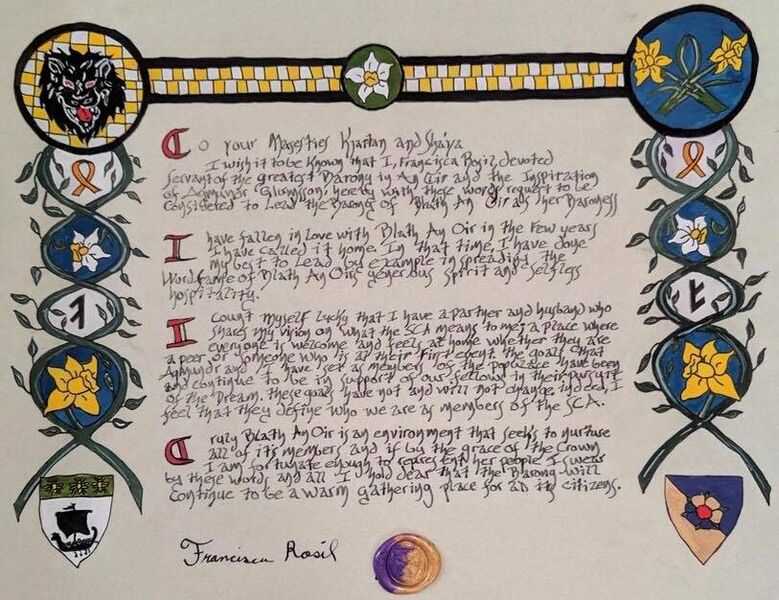 To your Majesties Kjartan and Sha'ya
I wish it to be known that I, Francisca Rosil, devoted
servant of the greatest Barony in An Tir and the Inspiration
of hereby with these words request to be
considered to Lead the Barony of Blath An Oir as her Baroness
I have fallen in love with Blath An Oir in the few years
I have called it home. In that time, I have done
my best to lead by example in spreading the
Word fame of Blath An Oirs generous spirit and selfless
hospitality.
I count myself lucky that I have a partner and husband who
shares my vision on what the SCA means to me; a place where
everyone is welcome and feels at home whether they are
a peer or someone who is at their first event. the goals that
and I have set as members of the populace have been
and continue to be in support of our fellows in their pursuit
of the Dream. these goals have not and will not change, indeed, I
feel that they define who we are as members of the SCA.
Truly Blath An Oir is an environment that seeks to nurture
all of its members and if by the grace of the Crown
I am fortunate enough to represent her people I swear
by these words and all I hold dear that the Barony will
continue to be a warm gathering place for all its citizens.
Francisca Rosil